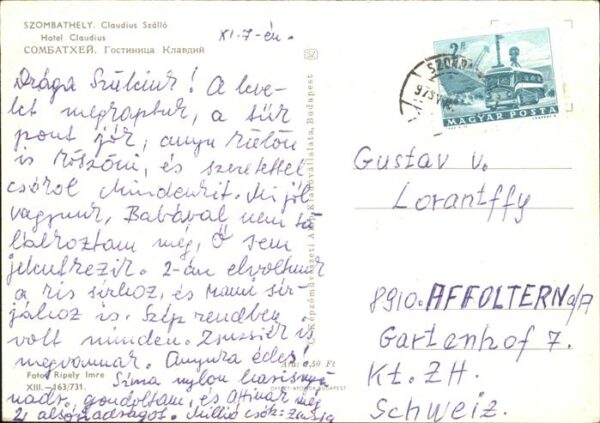 SZOMBATHELY: Claudius Szálló
Hotel Claudius
СОМБАТХЕЙ. Гостиница Клавдий
XI. 7-én.
Drága Szüleim! A leve-
let megkaptuk, a
jór, anyu külön
is köszöni, és szeretettel
csókol Mindenkit. Mi jól
vagyunk, Babával nem ta-
lálkoztam még, Ő sem
jelentkezik. 2-án elvoltunk
a kis sírhoz, és Mami sír-
jához is. Szép rendben
volt minden. Zsuzsiék is
megvannak. Annyira édes!
Sima nylon harisnya
nadr. gondoltam, és még
2 alsónadrágot. Millió csók:
Foto: Ripely Imre
XIII.—163/731.
Képzőművészeti Alap Kiadóvállalata, Budapest
Ára: 1,50 Ft
OFFSET-NYOMDA BUDAPEST
2 Ft
MAGYAR POSTA
SZOMB
973
Gustav v.
Lorantffy
8910. AFFOLTERN a/A
Gartenhof 7.
Kt. ZH.
Schweiz.